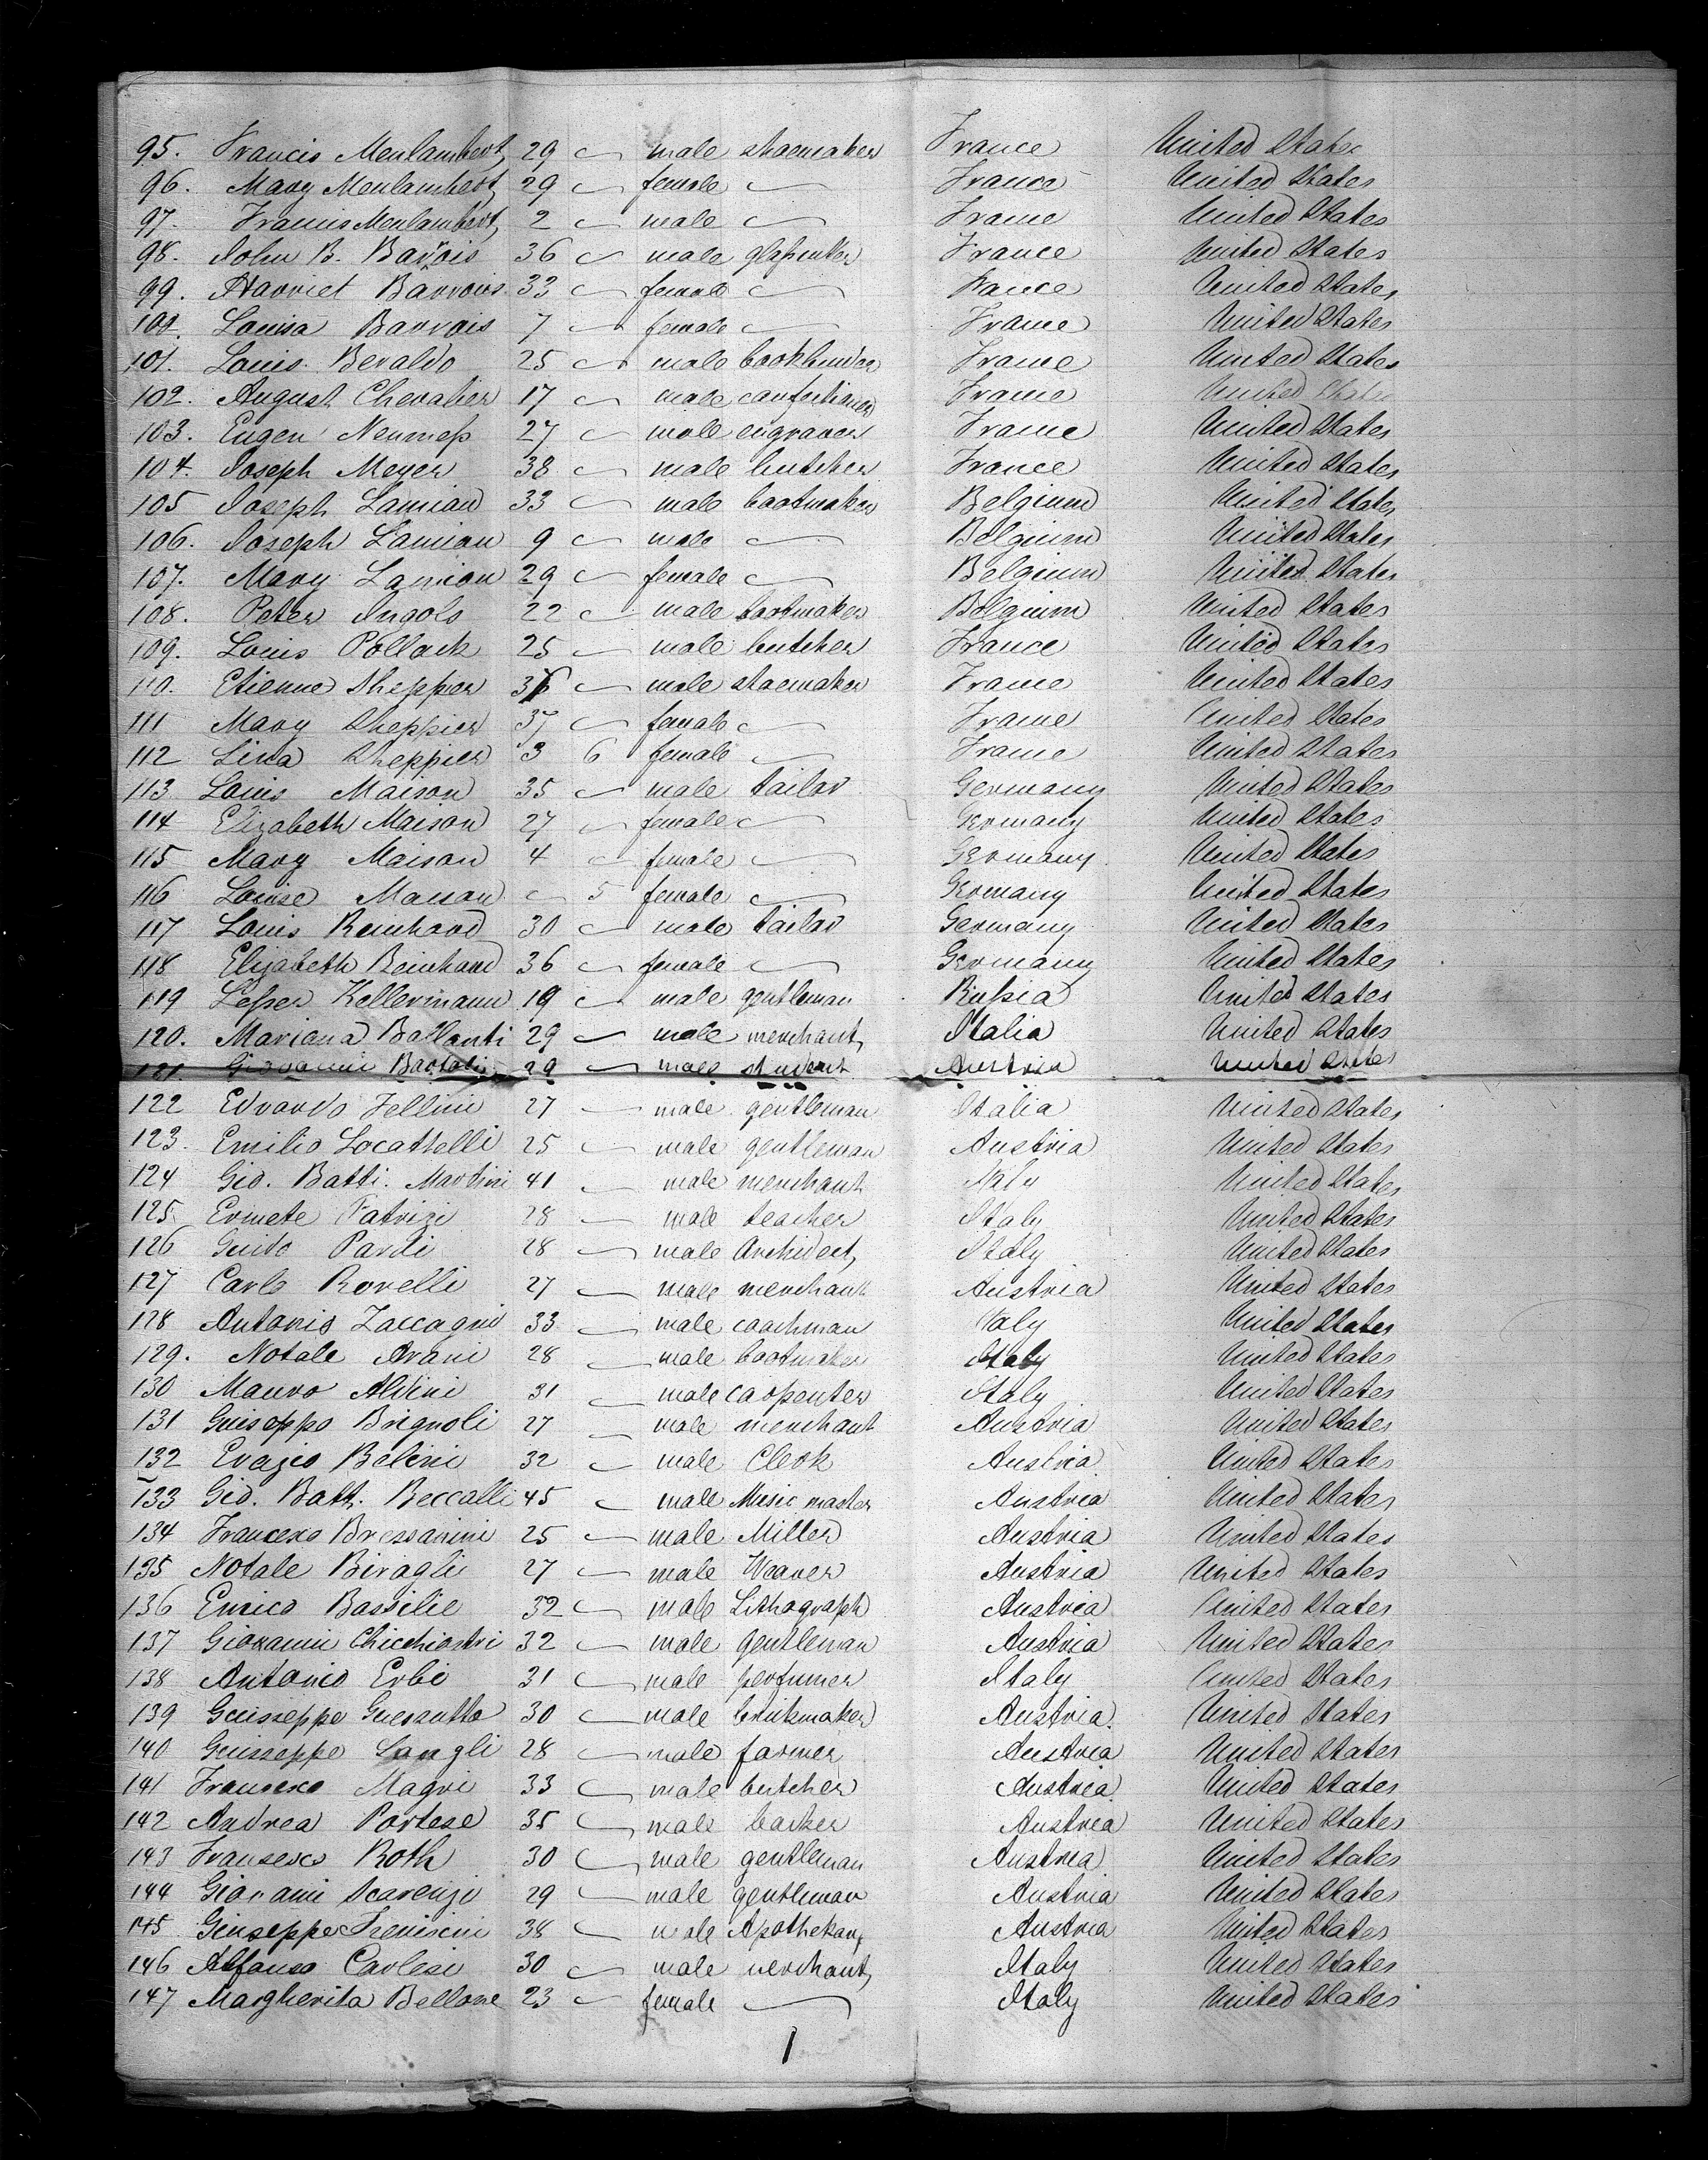 95. Francis Menlambert, 29 male shoemaker France United States
96. Mary Menlambert, 29 female France United States
97. Francis Menlambert, 2 male France United States
98. John B. Barrois 36 male France United States
99. Harriet Barrois 33 female France United States
Louisa Barrois 7 female France United States
101. Louis Beraldo 25 male bookbinder France United States
102. August Chevalier 17 male confectioner France United States
103. Eugen 27 male engraver France United States
104. Joseph Meyer 38 male butcher France United States
105 Joseph Lamian 33 male bootmaker Belgium United States
106. Joseph Lamian 9 male Belgium United States
107. Mary Lamian 29 female Belgium United States
108. Peter Ingols 22 male bootmaker Belgium United States
109. Louis Pollack 25 male butcher France United States
110. Etienne Sheppier male shoemaker France United States
111 Mary Sheppier 37 female France United States
112 Lina Sheppier 3 6 female France United States
113 Louis Maison 35 male tailor Germany United States
114 Elizabeth Maison 27 female Germany United States
115 Mary Maison 4 female Germany United States
116 Louise Maison 5 female Germany United States
117 Louis Reinhard 30 male tailor Germany United States
118 Elizabeth Reinhard 36 female Germany United States
119 Lesser Kellermann 19 male gentleman Russia United States
120. Mariana Ballanti 29 male merchant, Italia United States
121. Giovanni Bartolis 29 male student Austria United States
122 Edvardo Fellini 27 male gentleman Italia United States
123. Emilio Locathelli 25 male gentleman Austria United States
124 Gio. Batti. Martini 41 male merchant Italy United States
125. Ermete Fatrizi 28 male teacher Italy United States
126 Guido Pardi 28 male Archidect, Italy United States
127 Carlo Rovelli 27 male merchant Austria United States
128 Antonio Zaccagni 33 male coachman Italy United States
129. Notale Arani 28 male bootmaker Italy United States
130 Mauro Aldini 31 male carpenter Italy United States
131 Guiseppo Brignoli 27 male merchant Austria United States
132 Evazio Belini 32 male Clerk Austria United States
133 Gio. Batt. Beccalli 45 male Music master Austria United States
134 Francesco Bressanini 25 male Miller Austria United States
135 Notale Biragli 27 male Weaver Austria United States
136 Enrico Bassilie 32 male Lithograph Austria United States
137 Giovanni Chicchiostri 32 male gentleman Austria United States
138 Antonio Erbi 31 male perfumer Italy United States
139 Guisseppe Guezzotto 30 male brickmaker Austria United States
140 Guisseppe Langli 28 male farmer Austria United States
141 Francesco Magri 33 male butcher Austria United States
142 Andrea Portese 35 male Austria United States
143 Fransesco Roth 30 male gentleman Austria United States
144 Giovanni Scarenzi 29 male gentleman Austria United States
145 Giuseppe 38 male Apothekary Austria United States
146 Alfonso Carlesi 30 male merchant, Italy United States
147 Margherita Bellone 23 female Italy United States
1